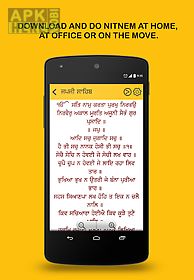 DOWNLOAD AND DO NITNEM AT HOME,
AT OFFICE OR ON THE MOVE.
APK
BHAI
ਜਪੁਜੀ ਸਾਹਿਬ
ੴ ਸਤਿ ਨਾਮੁ ਕਰਤਾ ਪੁਰਖੁ ਨਿਰਭਉ
ਨਿਰਵੈਰੁ ਅਕਾਲ ਮੂਰਤਿ ਅਜੂਨੀ ਸੈਭੰ ਗੁਰ
ਪ੍ਰਸਾਦਿ ॥
॥ ਜਪੁ ॥
ਆਦਿ ਸਚੁ ਜੁਗਾਦਿ ਸਚੁ ॥
ਹੈ ਭੀ ਸਚੁ ਨਾਨਕ ਹੋਸੀ ਭੀ ਸਚੁ ॥੧॥
ਸੋਚੈ ਸੋਚਿ ਨ ਹੋਵਈ ਜੇ ਸੋਚੀ ਲਖ ਵਾਰ ॥
ਚੁਪੈ ਚੁਪ ਨ ਹੋਵਈ ਜੇ ਲਾਇ ਰਹਾ ਲਿਵ
ਤਾਰ ॥
ਭੁਖਿਆ ਭੁਖ ਨ ਉਤਰੀ ਜੇ ਬੰਨਾ ਪੁਰੀਆ
ਭਾਰ ॥
ਸਹਸ ਸਿਆਣਪਾ ਲਖ ਹੋਹਿ ਤ ਇਕ ਨ ਚਲੈ
ਨਾਲਿ ॥
ਕਿਵ ਸਚਿਆਰਾ ਹੋਈਐ ਕਿਵ ਕੂੜੈ ਤੁਟੈ